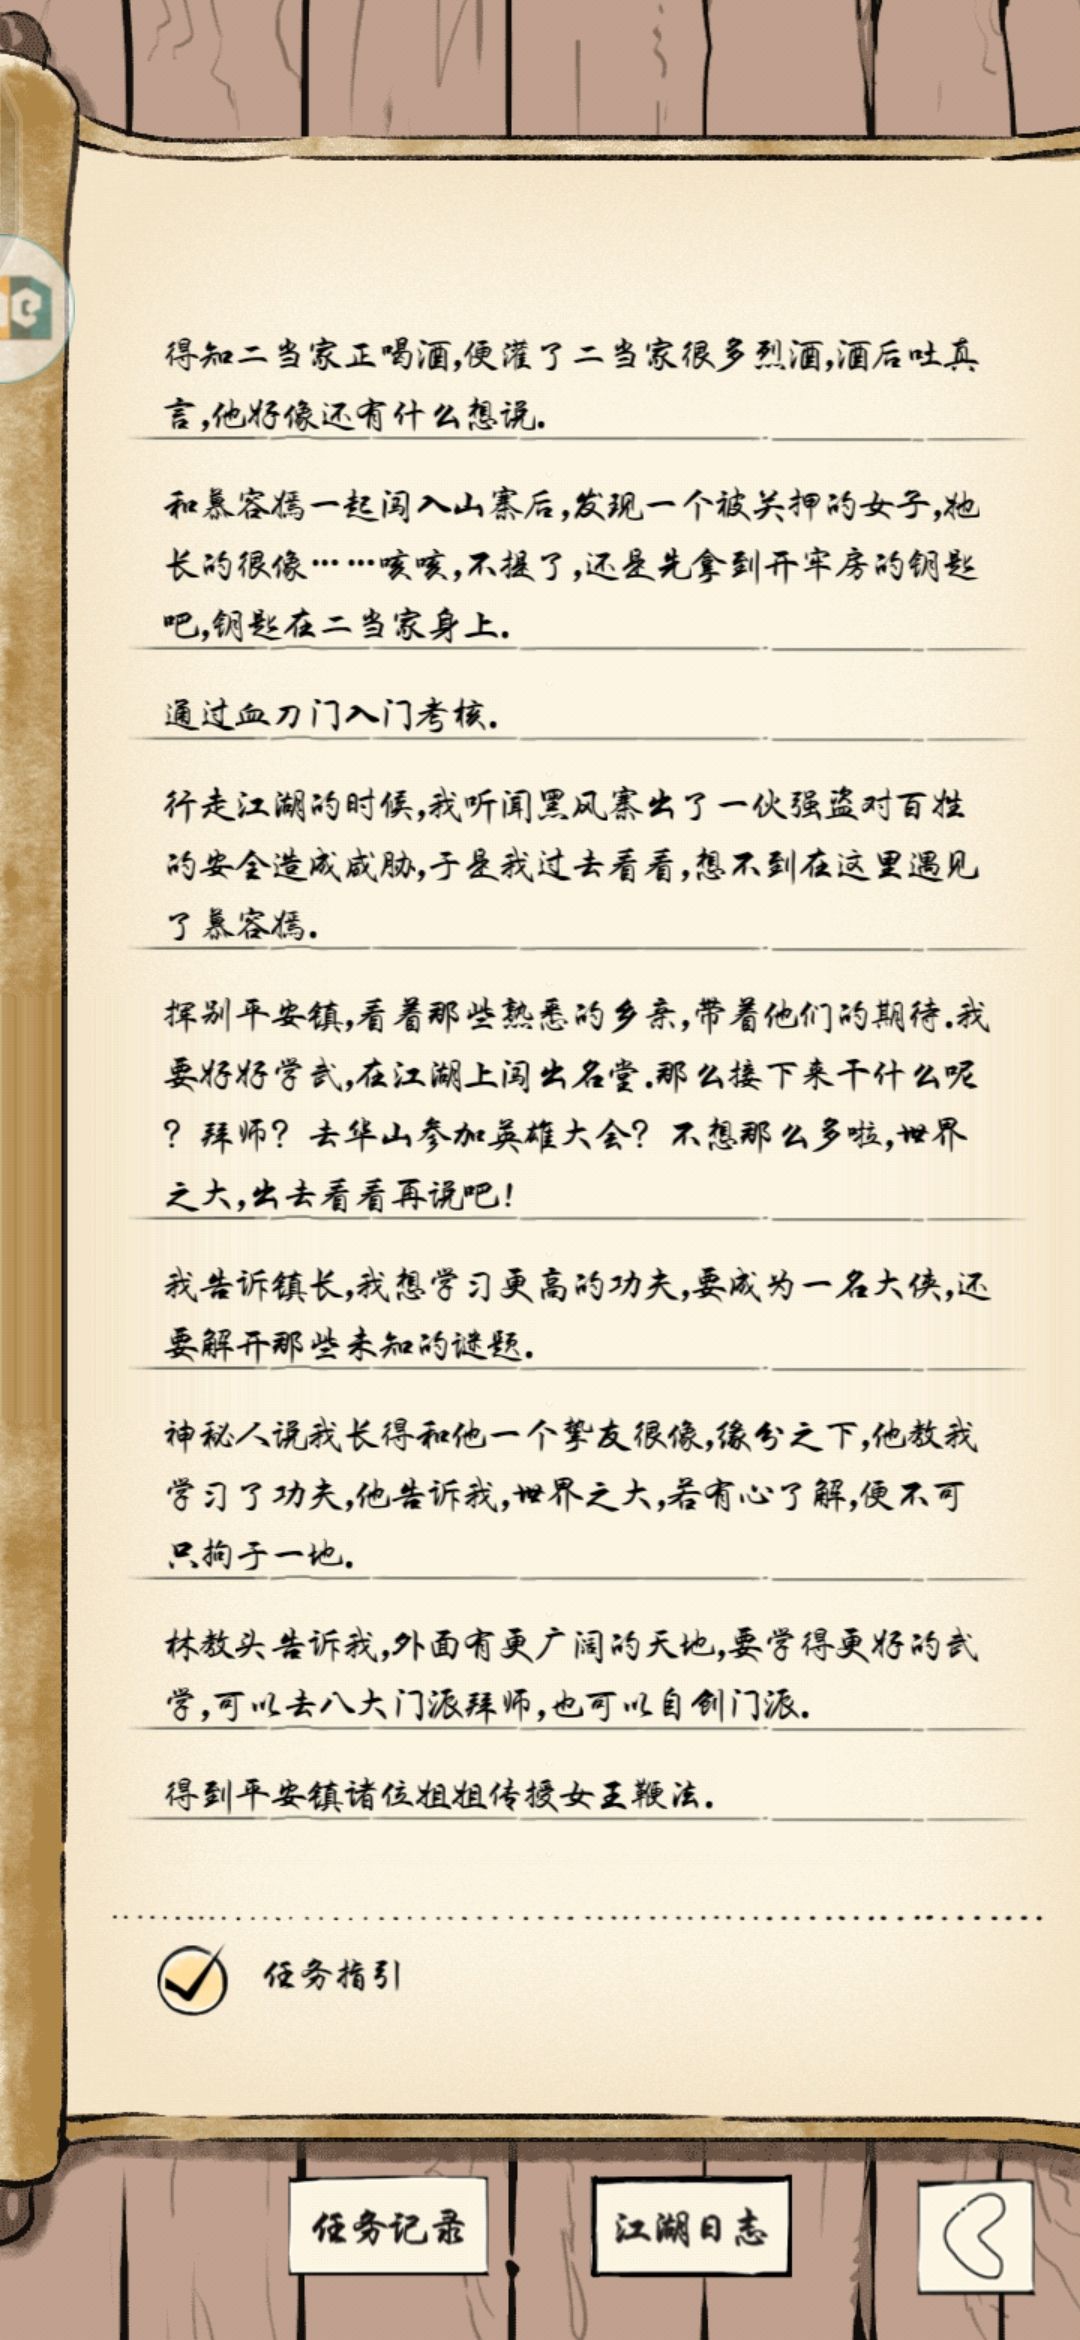 得知二当家正喝酒,便灌了二当家很多烈酒,酒后吐真
言,他好像还有什么想说.
和慕容嫣一起闯入山寨后,发现一个被关押的女子,她
长的很像……咳咳,不提了,还是先拿到开牢房的钥匙
吧,钥匙在二当家身上.
通过血刀门入门考核.
行走江湖的时候,我听闻黑风寨出了一伙强盗对百姓
的安全造成威胁,于是我过去看看,想不到在这里遇见
了慕容嫣.
挥别平安镇,看着那些熟悉的乡亲,带着他们的期待.我
要好好学武,在江湖上闯出名堂.那么接下来干什么呢
？拜师？去华山参加英雄大会？不想那么多啦,世界
之大,出去看看再说吧！
我告诉镇长,我想学习更高的功夫,要成为一名大侠,还
要解开那些未知的谜题.
神秘人说我长得和他一个挚友很像,缘分之下,他教我
学习了功夫,他告诉我,世界之大,若有心了解,便不可
只拘于一地.
林教头告诉我,外面有更广阔的天地,要学得更好的武
学,可以去八大门派拜师,也可以自创门派.
得到平安镇诸位姐姐传授女王鞭法.
任务指引
任务记录
江湖日志